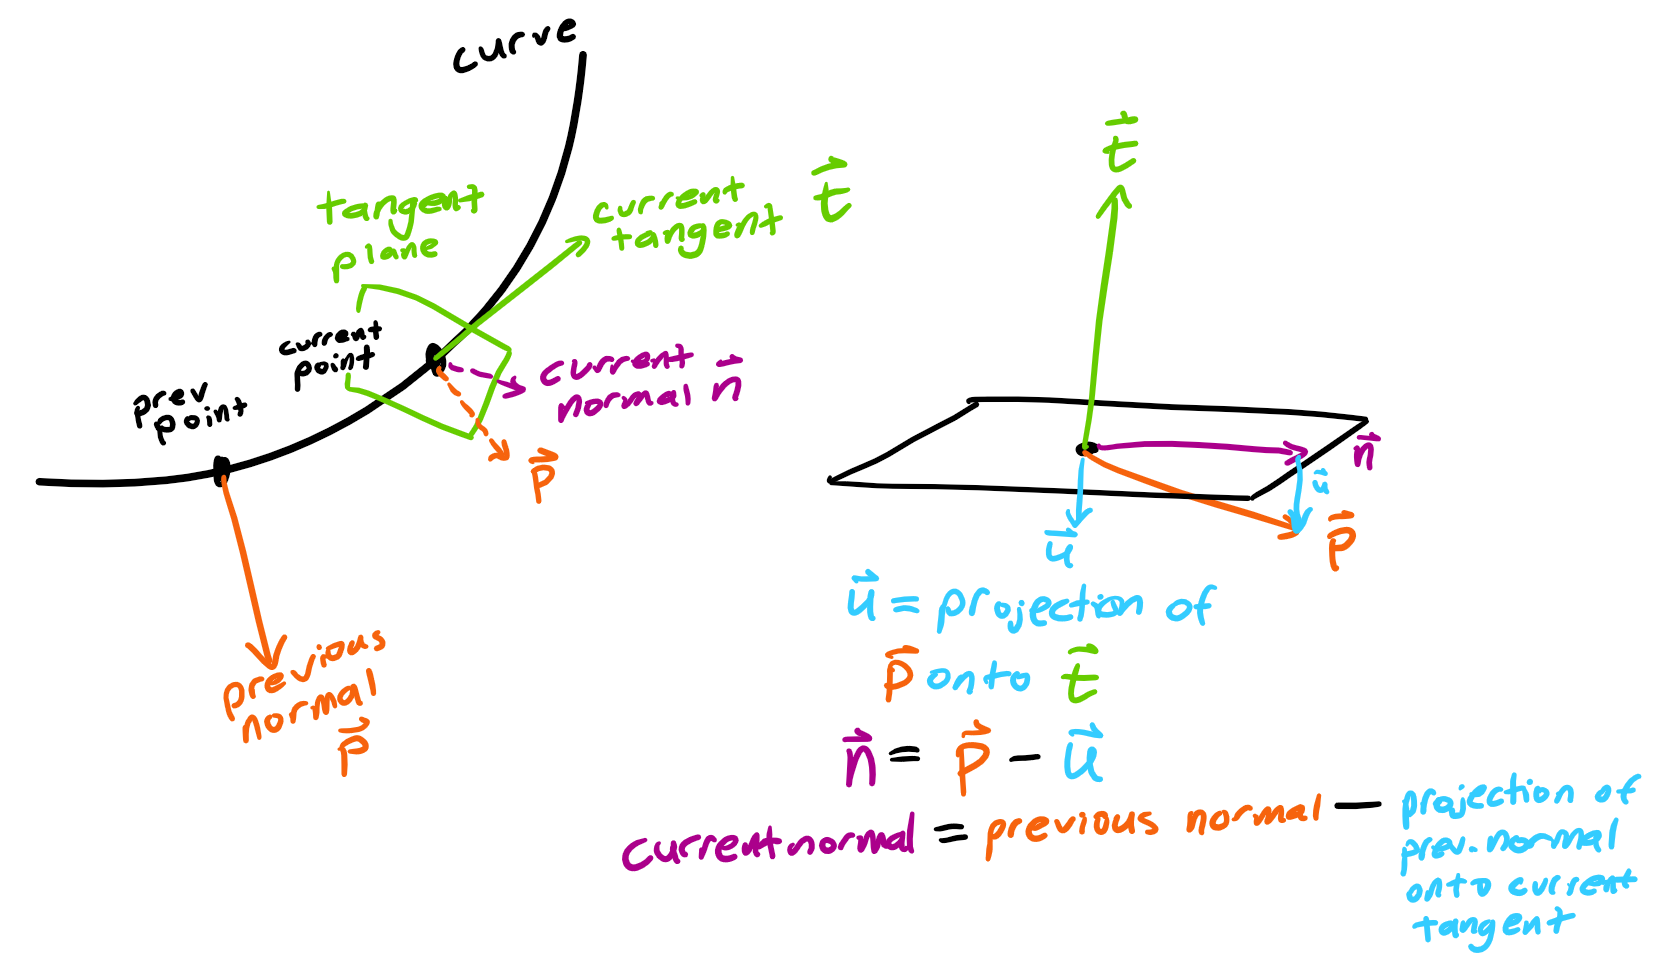 curve
tangent
plane
current
tangent
t⃗
current
point
current
normal n⃗
prev
point
p⃗
previous
normal
p⃗
t⃗
n⃗
u⃗
p⃗
u⃗
u⃗ = projection of
p⃗ onto t⃗
n⃗ = p⃗ - u⃗
current normal = previous normal — projection of
prev. normal
onto current
tangent